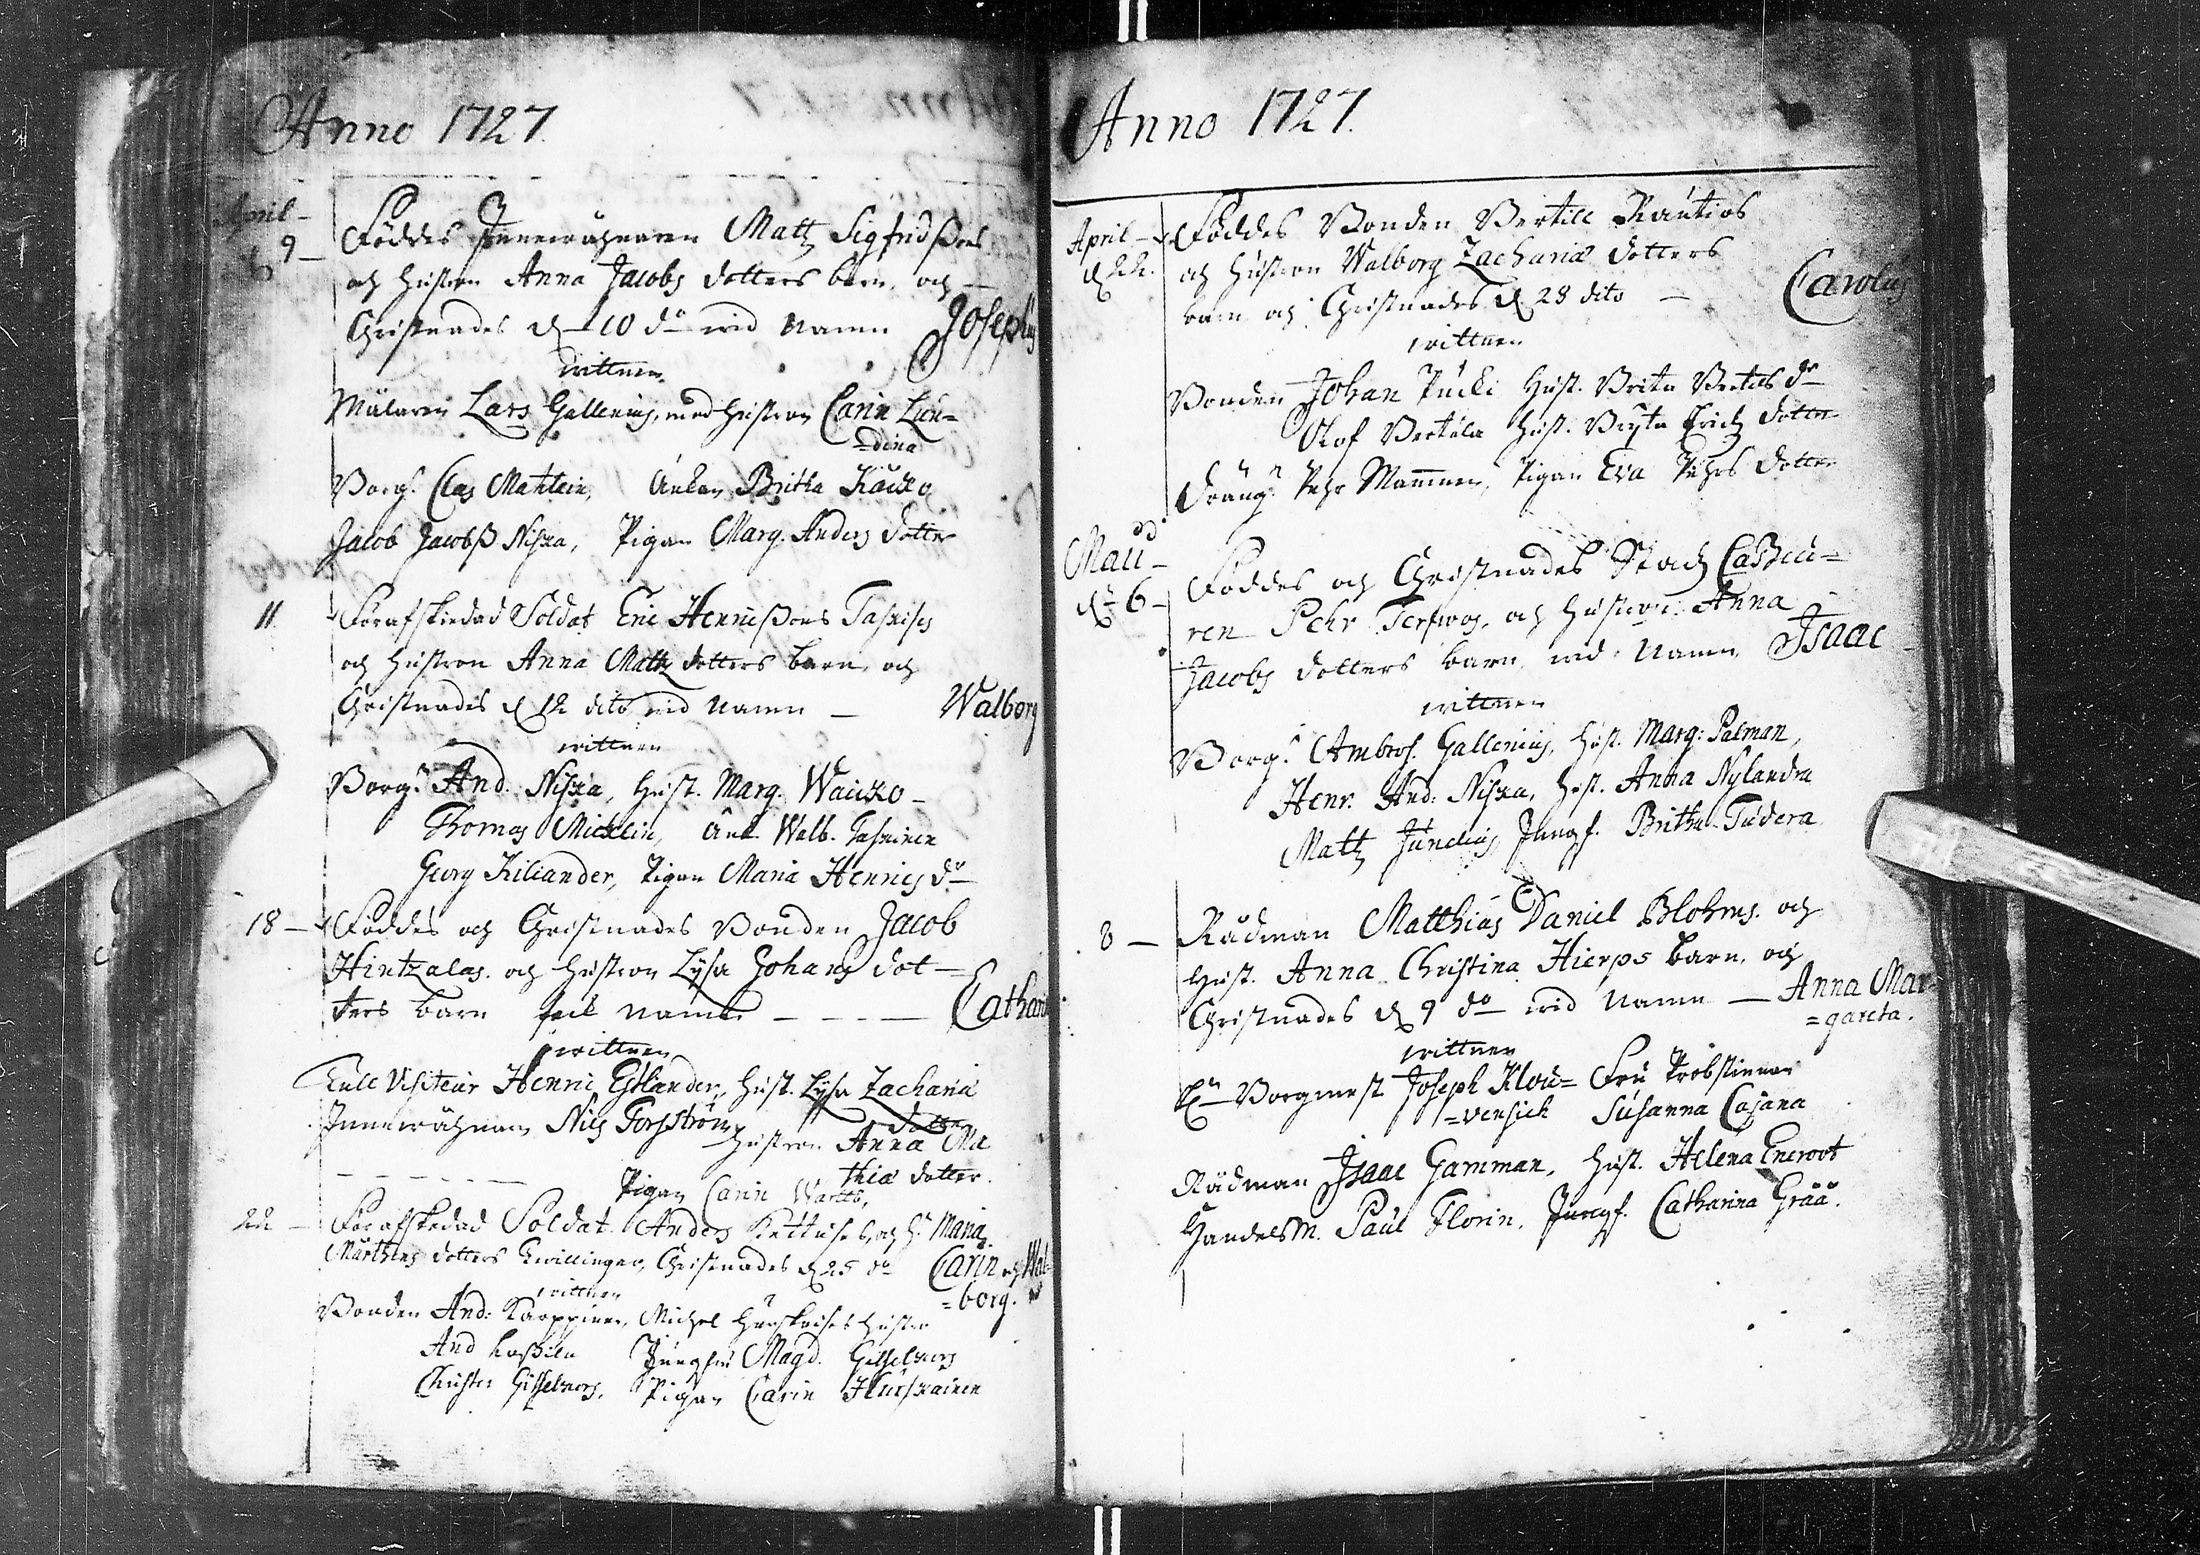 Anno 1727.
April
9 Föddes Innewåhnaren Matz Sigfridßons
och hustron Anna Jacobs dotters barn, och
Christnades d 10 do wid namn Josephus
wittnen
Målaren Lars Gallenius, med hustron Carin Lun=
=dina
Borg. Clas Mathlin, Änkan Britha
Jacob Jacobß Niska, Pigan Marg. Anders dotter
11 Förafskiedad Soldat Eric Henricßons
och hustron Anna Matz dotters barn, och
Christnades d 12 dito wid namn Walborg
wittnen
Borg. And. Niska, Hust. Marg.
Thomas Micklin, Änk. Walb.
Georg Kiliander, Pigan Maria Henrics do
18 Föddes och Christnades Bonden Jacob
Hintzalas och hustron Lysa Johans dot=
ters barn wid namn Catharina
wittnen
Tull Visiteur Henric Estlander, Hust. Lysa Zachariæ
dotter
Innewåhnaren Nils Forsström, Hustron Anna Ma
thiæ dotter.
Pigan Carin
22 Förafskedad Soldat Anders och H. Maria
Mårthens dotters twillingar, Christnades d 25 do Carin och Wal=
=borg.
wittnen
Bonden And: Karppinen, Michel hustro
And Jungfru Magd. Gisselkors
Christer Gisselkors, Pigan Carin Hurskainen
Anno 1727.
April
d 22. Föddes Bonden Bertill Rautios
och Hustron Walborg Zachariæ dotters
barn och Christnades d 28 dito Carolus
wittnen
Bonden Johan Pucki Hust. Brita Bertils do
Olof Hust. Bryta Erichs dotter
Dräng. Pehr Mammen, Pigan Eva Pehrs dotter
Maii
d 6 Föddes och Christnades Stads Caßeu=
ren Pehr Terfwos, och Hustron Anna
Jacobs dotters barn wid Namn Isaac
wittnen
Borg. Ambros. Gallenius, Hust. Marg: Palman,
Henr. And: Niska, Hust. Anna Nylandra
Matz Junelius, Jungf. Britha Tudera
8 Rådman Matthias Daniel Blohms och
Hust. Anna Christina Hierps barn, och
Christnades d 9 do wid Namn Anna Mar=
=gareta.
wittnen
Hr Borgmest Joseph Klou= Fru Probstinnan
=vensich Susanna Cajana
Rådman Isaac Gamman, Hust. Helena Eneroot
Handelsm. Paul Florin. Jungf. Catharina Gråå.